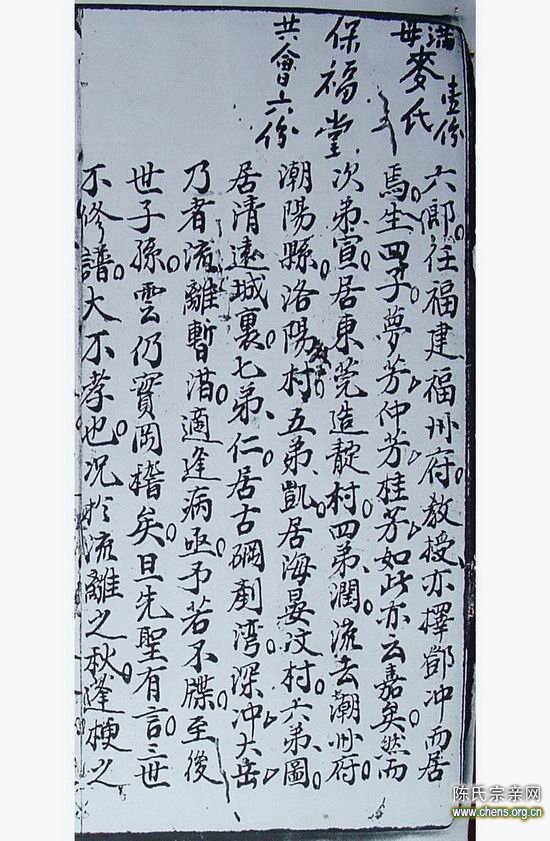 壹份
滿
母麥氏
保福堂
共會六份
六郎任福建福州府教授亦擇鄧冲而居
焉生四子夢芳仲芳桂芳如此亦云嘉矣然而
次弟宣居東莞造靛村四弟潤流去潮州府
潮陽縣洛陽村五弟凱居海晏汶村六弟圖
居清遠城裏七弟仁居古硐劏湾深冲大岳
乃者流離暫湽適逢病亟予若不牒至後
世子孫雲仍實罔稽矣旦先聖有言三世
不修譜大不孝也況於流離之秋逢梗之
陈氏宗亲网
www.chens.org.cn